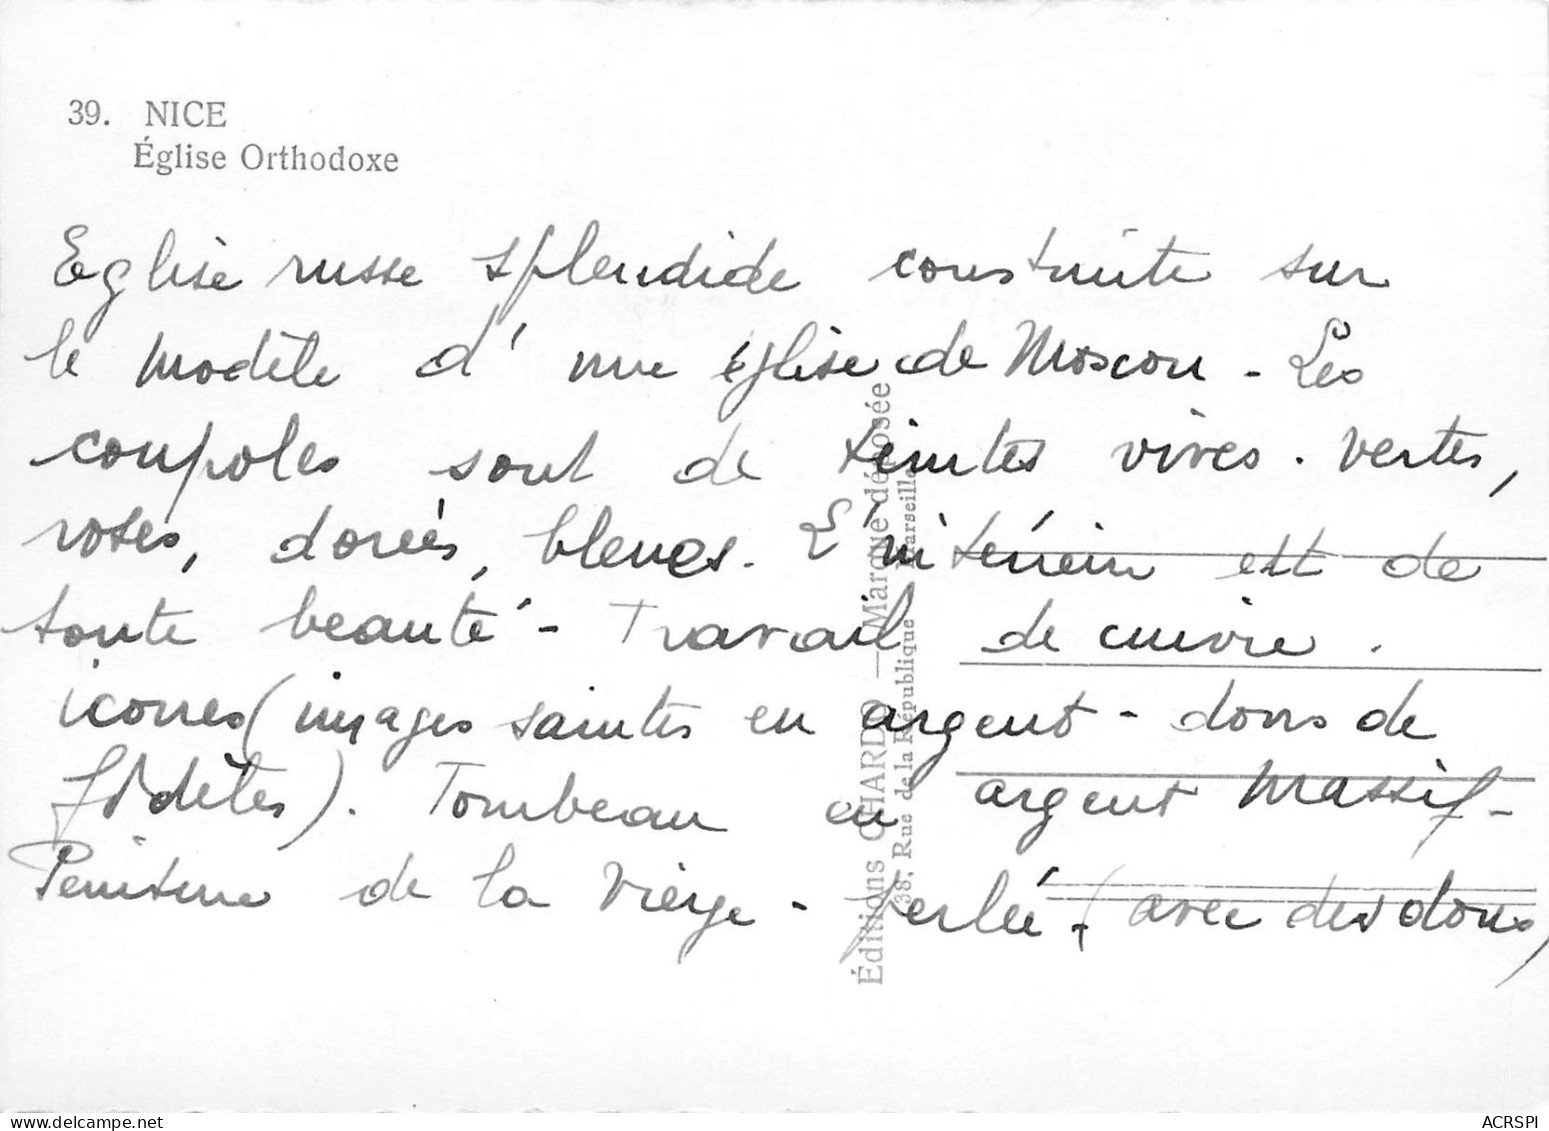 39. NICE
Église Orthodoxe
Eglise russe splendide construite sur
le modèle d'une église de Moscou - Les
coupoles sont de teintes vives. vertes,
roses, dorées, bleues. L'intérieur est de
toute beauté - Travail de cuivre.
icones (images saintes en argent - dons de
fidèles). Tombeau en argent massif -
Peinture de la Vierge - perlée - (avec des dons)
Éditions CHARDO — Marque déposée
38, Rue de la République - Marseille
ACRSPI